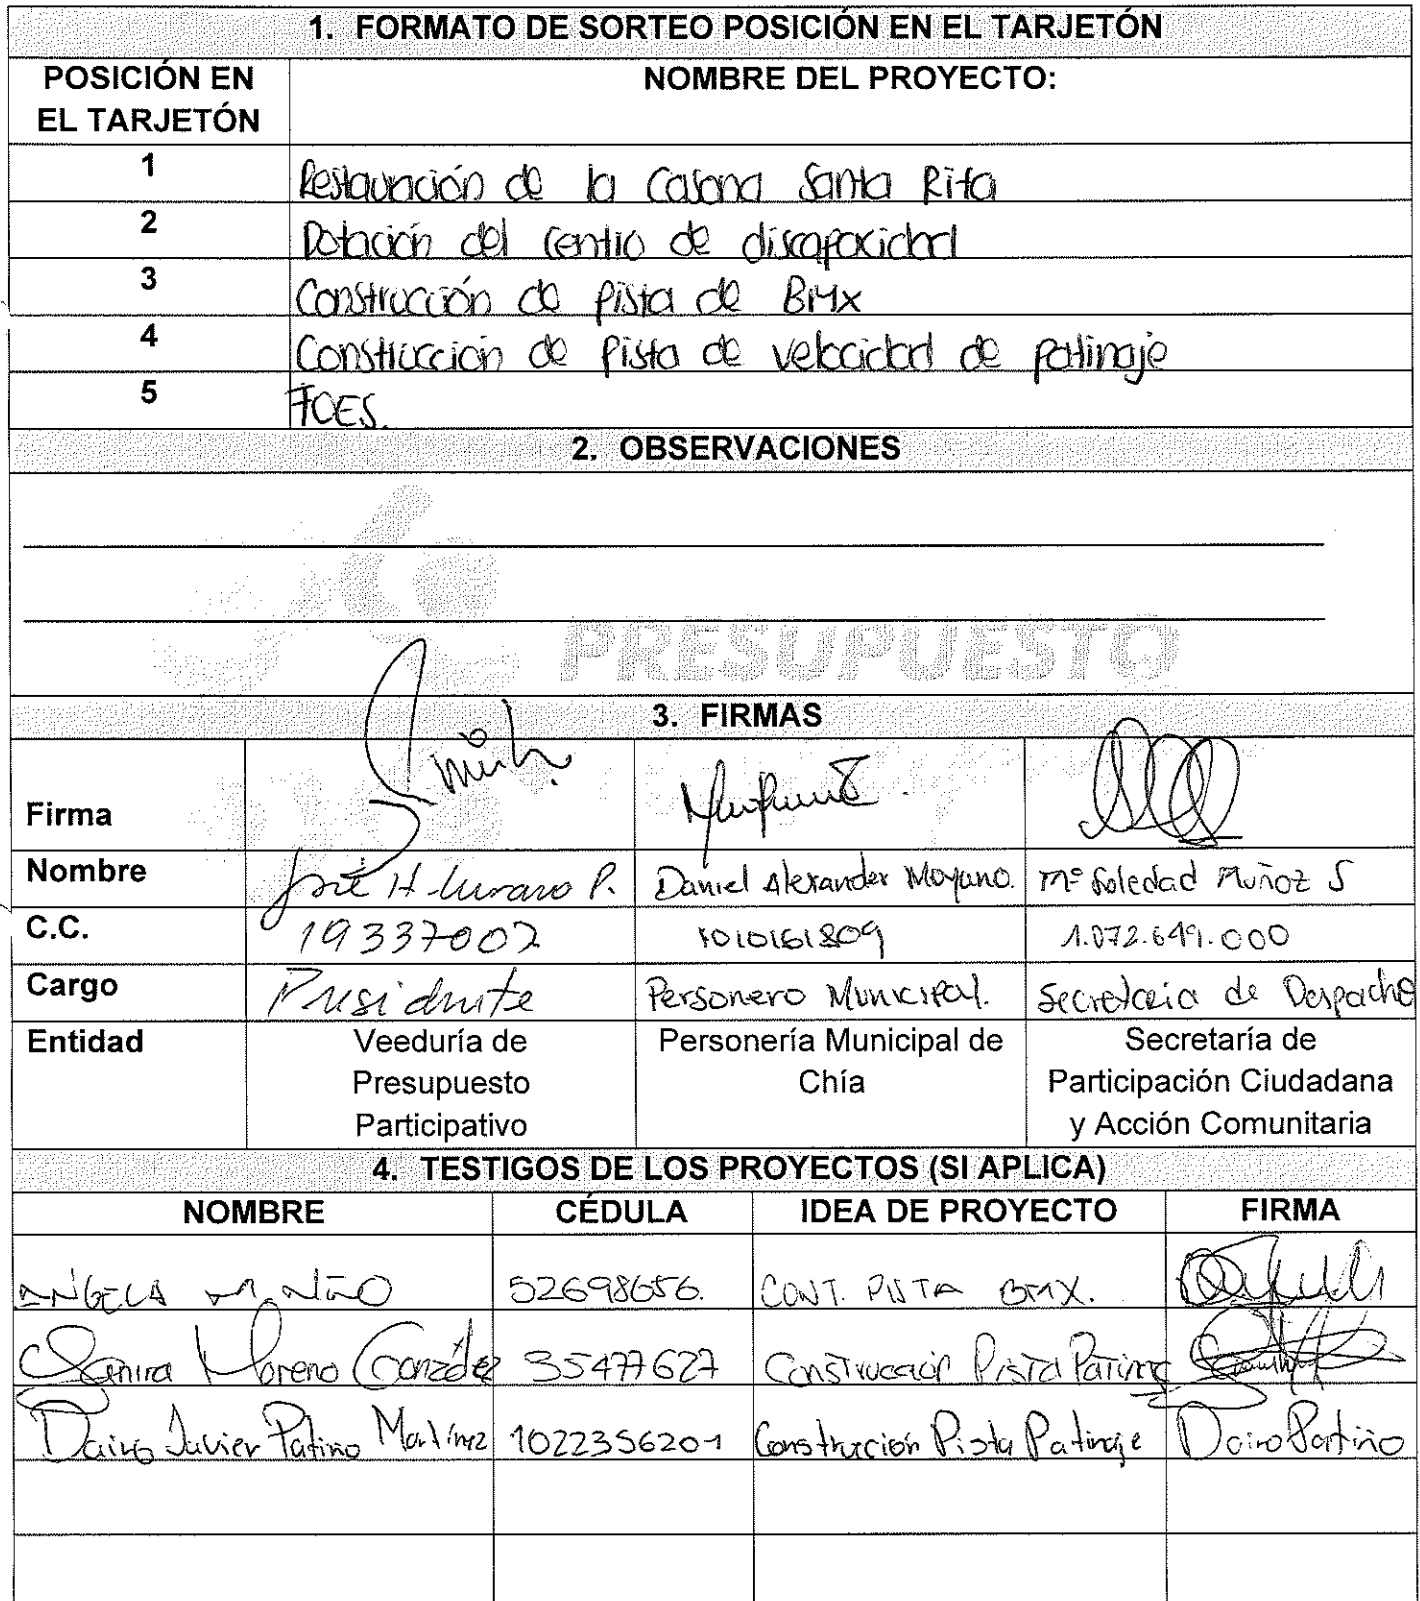 1. FORMATO DE SORTEO POSICIÓN EN EL TARJETÓN
POSICIÓN EN EL TARJETÓN NOMBRE DEL PROYECTO:
1 Restauración de la Casona Santa Rita
2 Dotación del Centro de discapacidad
3 Construcción de pista de BMX
4 Construccion de Pista de velocidad de patinaje
5 FOES.
2. OBSERVACIONES
PRESUPUESTO
3. FIRMAS
Firma
Nombre José H. P. Daniel Alexander Moyano. Mª Soledad Muñoz S
C.C. 19337002 1010161809 1.072.649.000
Cargo Presidente Personero Municipal. Secretaria de Despacho
Entidad Veeduría de Personería Municipal de Secretaría de
Presupuesto Chía Participación Ciudadana
Participativo y Acción Comunitaria
4. TESTIGOS DE LOS PROYECTOS (SI APLICA)
NOMBRE CÉDULA IDEA DE PROYECTO FIRMA
ANGELA M. NIÑO 52698656. CONT. PISTA BMX.
Moreno González 35477627 Construcción Pista Patinaje
Dairo Javier Patiño Martínez 1022356201 Construcción Pista Patinaje Dairo Patiño